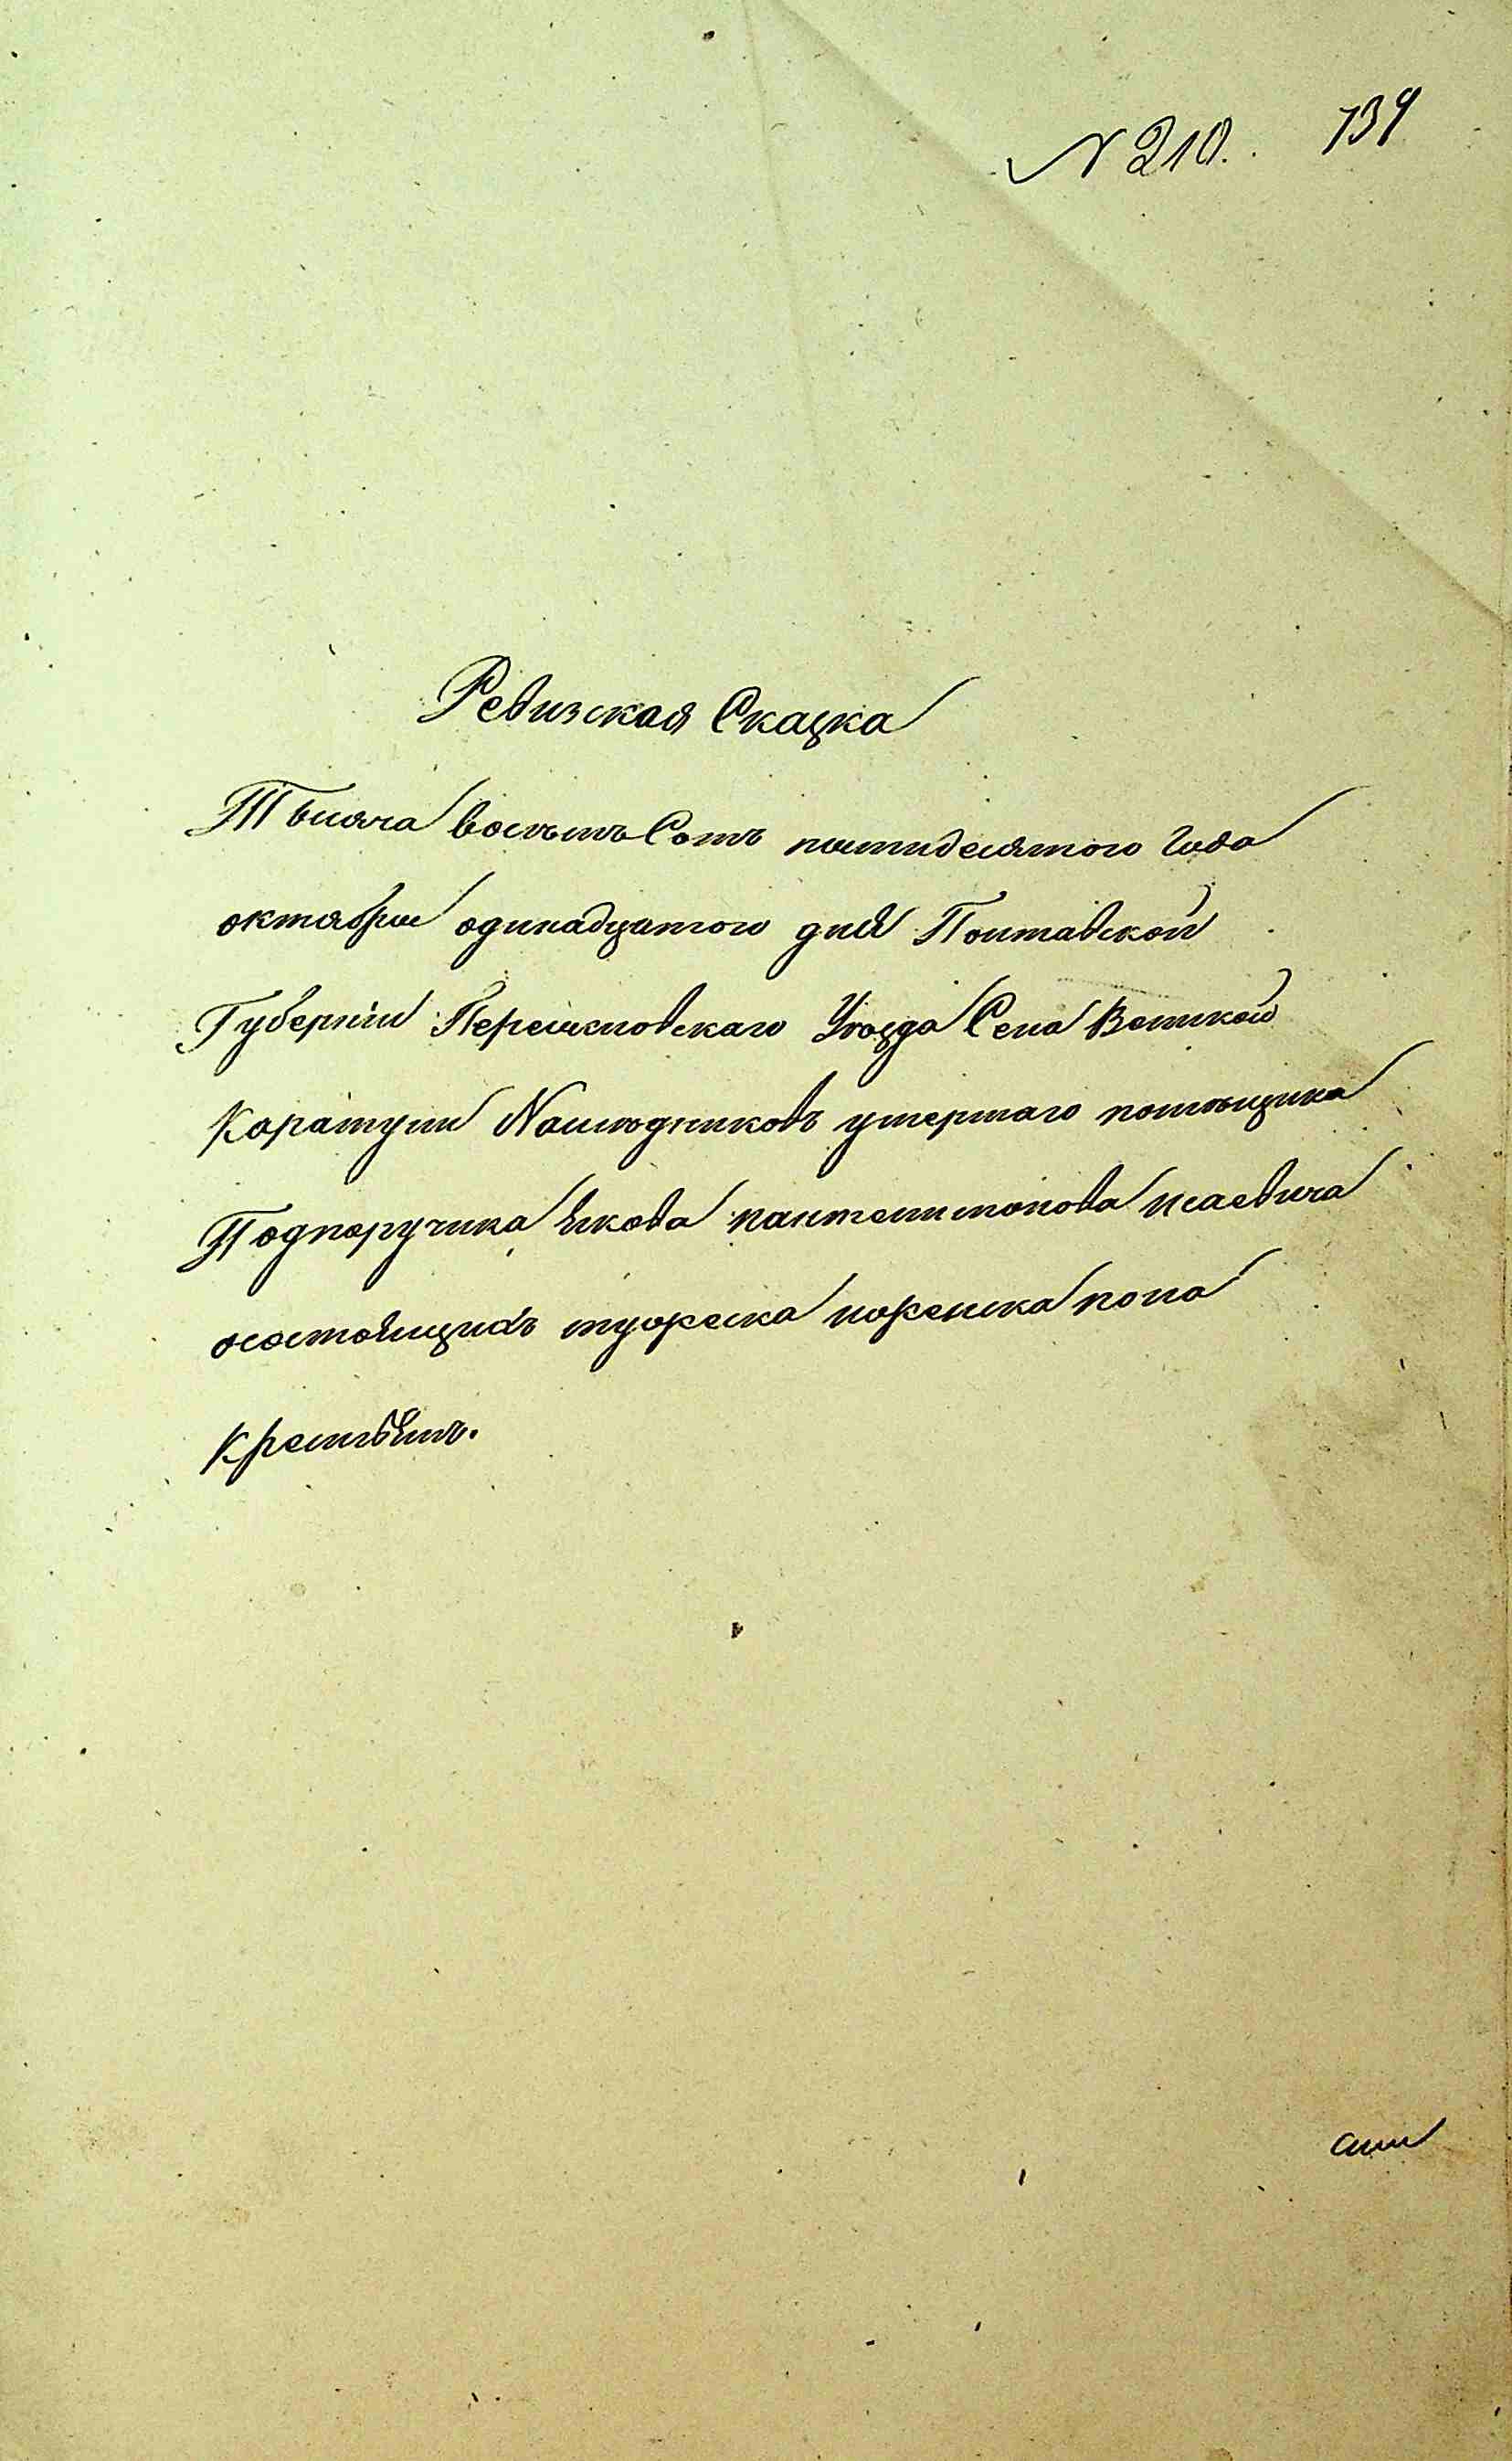 N 210. 139
Ревизская Сказка
Тысяча восемь Сотъ пятидесятого Года
октября одинадцатого дня Полтавской
Губерніи Переясловскаго Уѣзда Села Великой
Каратули Наслѣдниковъ умершаго помѣщика
Подпоручика Якова пантелимонова исаевича
осостоящихъ мужеска иженска пола
крестьянъ.